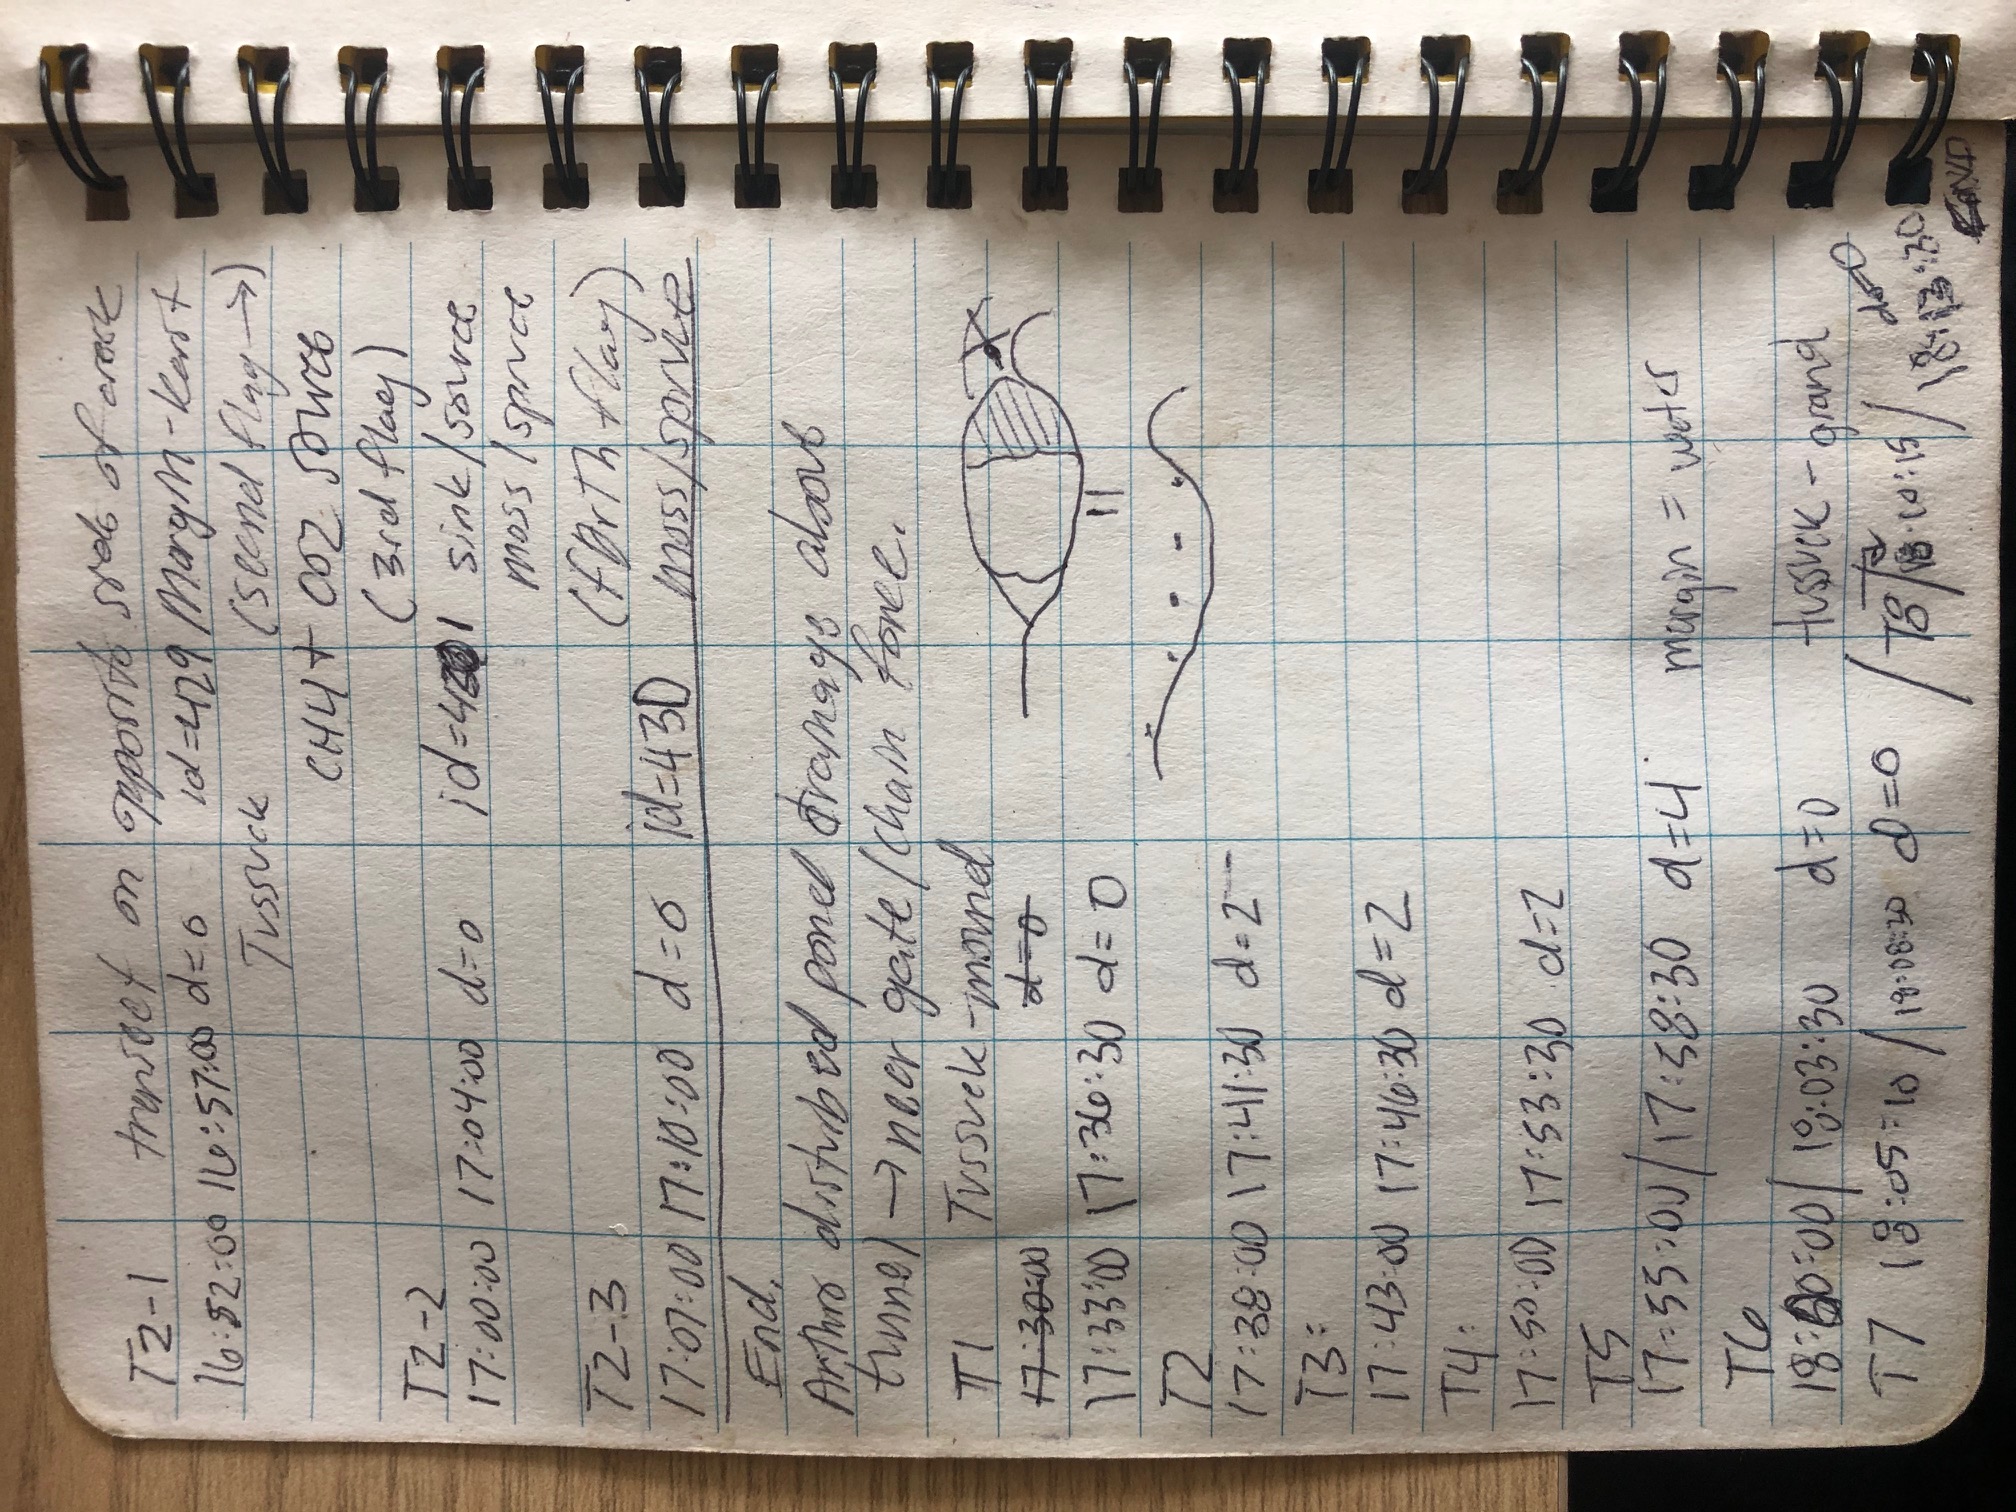 T2-1 transect on opposite side of creek
16:52:00 16:57:00 d=0 id=429 Margin-Karst
Tussuck (second flag →)
CH4 + CO2 source
(3rd flag)
T2-2
17:00:00 17:04:00 d=0 id=431 sink/source
moss/spruce
T2-3 (forth flag)
17:07:00 17:10:00 d=0 id=430 moss/spruce
End.
Anthro disturbed pond drainage above
tunnel → near gate/chain fence.
T1 Tussuck-mound
17:30:00 d=0
17:33:00 17:36:30 d=0
T2
17:38:00 17:41:30 d=2
T3:
17:43:00 17:46:30 d=2
T4:
17:50:00 17:53:30 d=2
T5
17:55:00/17:58:30 d=4 margin = water
T6
18:00:00/18:03:30 d=0 tussuck-grand
T7 18:05:10/18:08:30 d=0 / T8/18:10:15/18:13:30 d=0
END